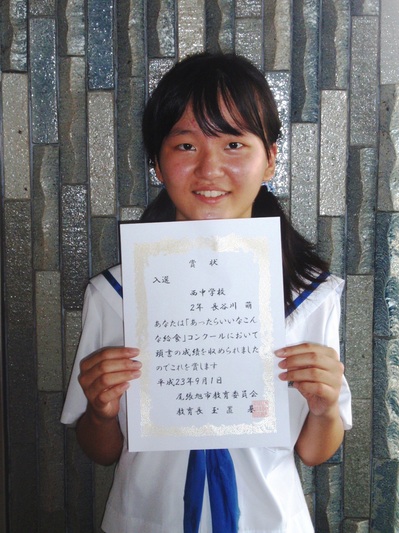 賞状
入選
西中学校
2年 長谷川 萌
あなたは「あったらいいなこん
な給食」コンクールにおいて
頭書の成績を収められました
のでこれを賞します
平成23年9月1日
尾張旭市教育委員会
教育長 玉置 基